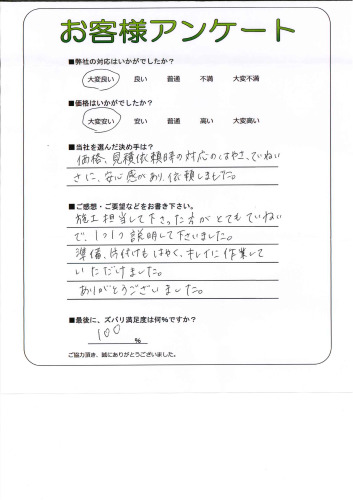 お客様アンケート
■弊社の対応はいかがでしたか?
大変良い 良い 普通 不満 大変不満
■価格はいかがでしたか?
大変安い 安い 普通 高い 大変高い
■当社を選んだ決め手は?
価格、見積依頼時の対応のはやさ、ていねい
さに、安心感があり、依頼しました。
■ご感想・ご要望などをお書き下さい。
施工担当して下さった方がとてもていねい
で、1つ1つ説明して下さいました。
準備、片付けもはやく、キレイに作業して
いただけました。
ありがとうございました。
■最後に、ズバリ満足度は何%ですか?
100 %
ご協力頂き、誠にありがとうございました。